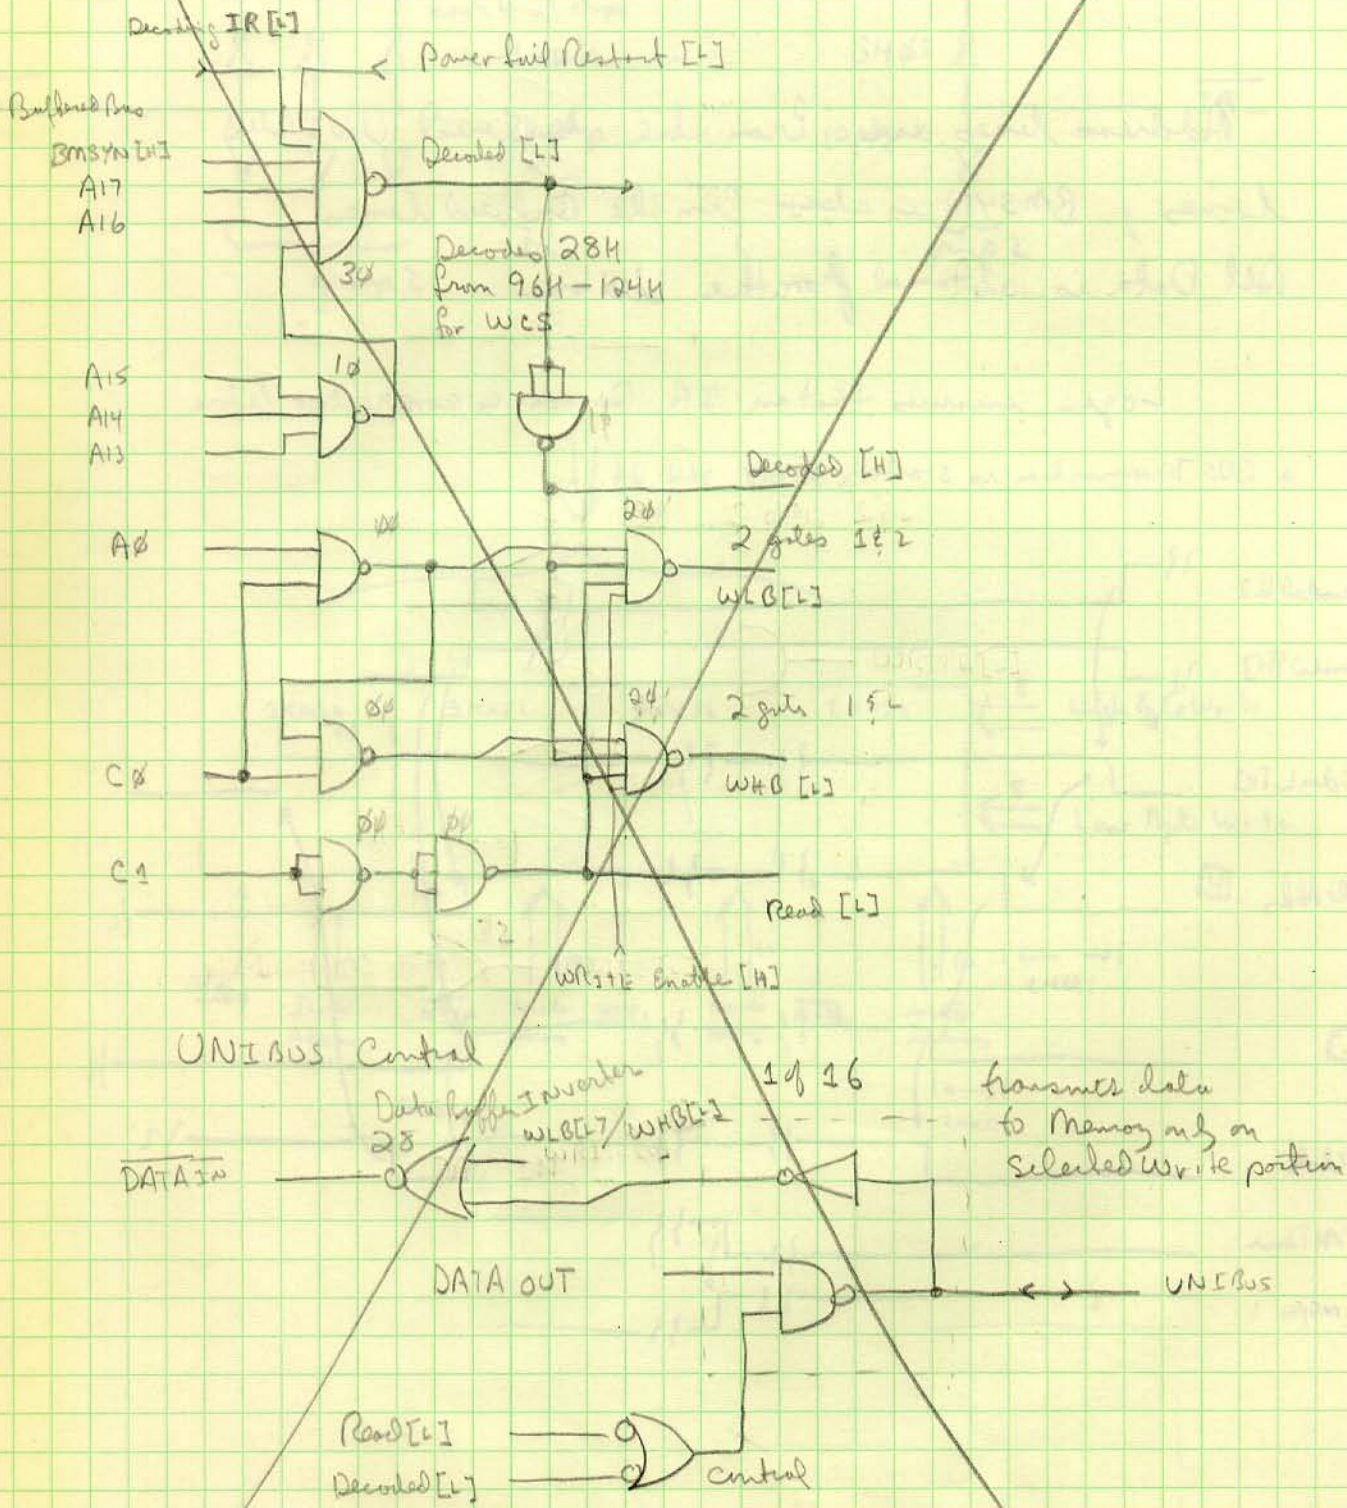 Decoding IR[L]
Power fail Restart [L]
Buffered Bus
BMSYN[H]
A17
A16
Decoded [L]
3ø
Decodes 28H
from 96H-124H
for WCS
A15
A14
A13
1ø
1ø
Decoded [H]
Aø
øø
2ø
2 gates 1 & 2
WLB[L]
øø
2ø
2 gates 1 & 2
Cø
WHB [L]
C1
øø
øø
Read [L]
WRITE Enable [H]
UNIBUS Control
1 of 16
transmits data
to Memory only on
selected write portion
Data Buffer Inverter
WLB[L]/WHB[L]
28
DATA IN
DATA OUT
UNIBUS
Read[L]
Decoded[L]
Control